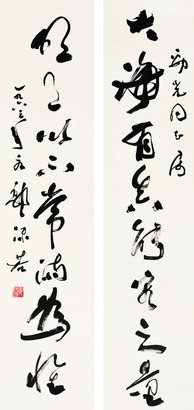 大海有真能容之量
勁光同志屬
明月以不常滿為性
一九六三年冬 郭沫若